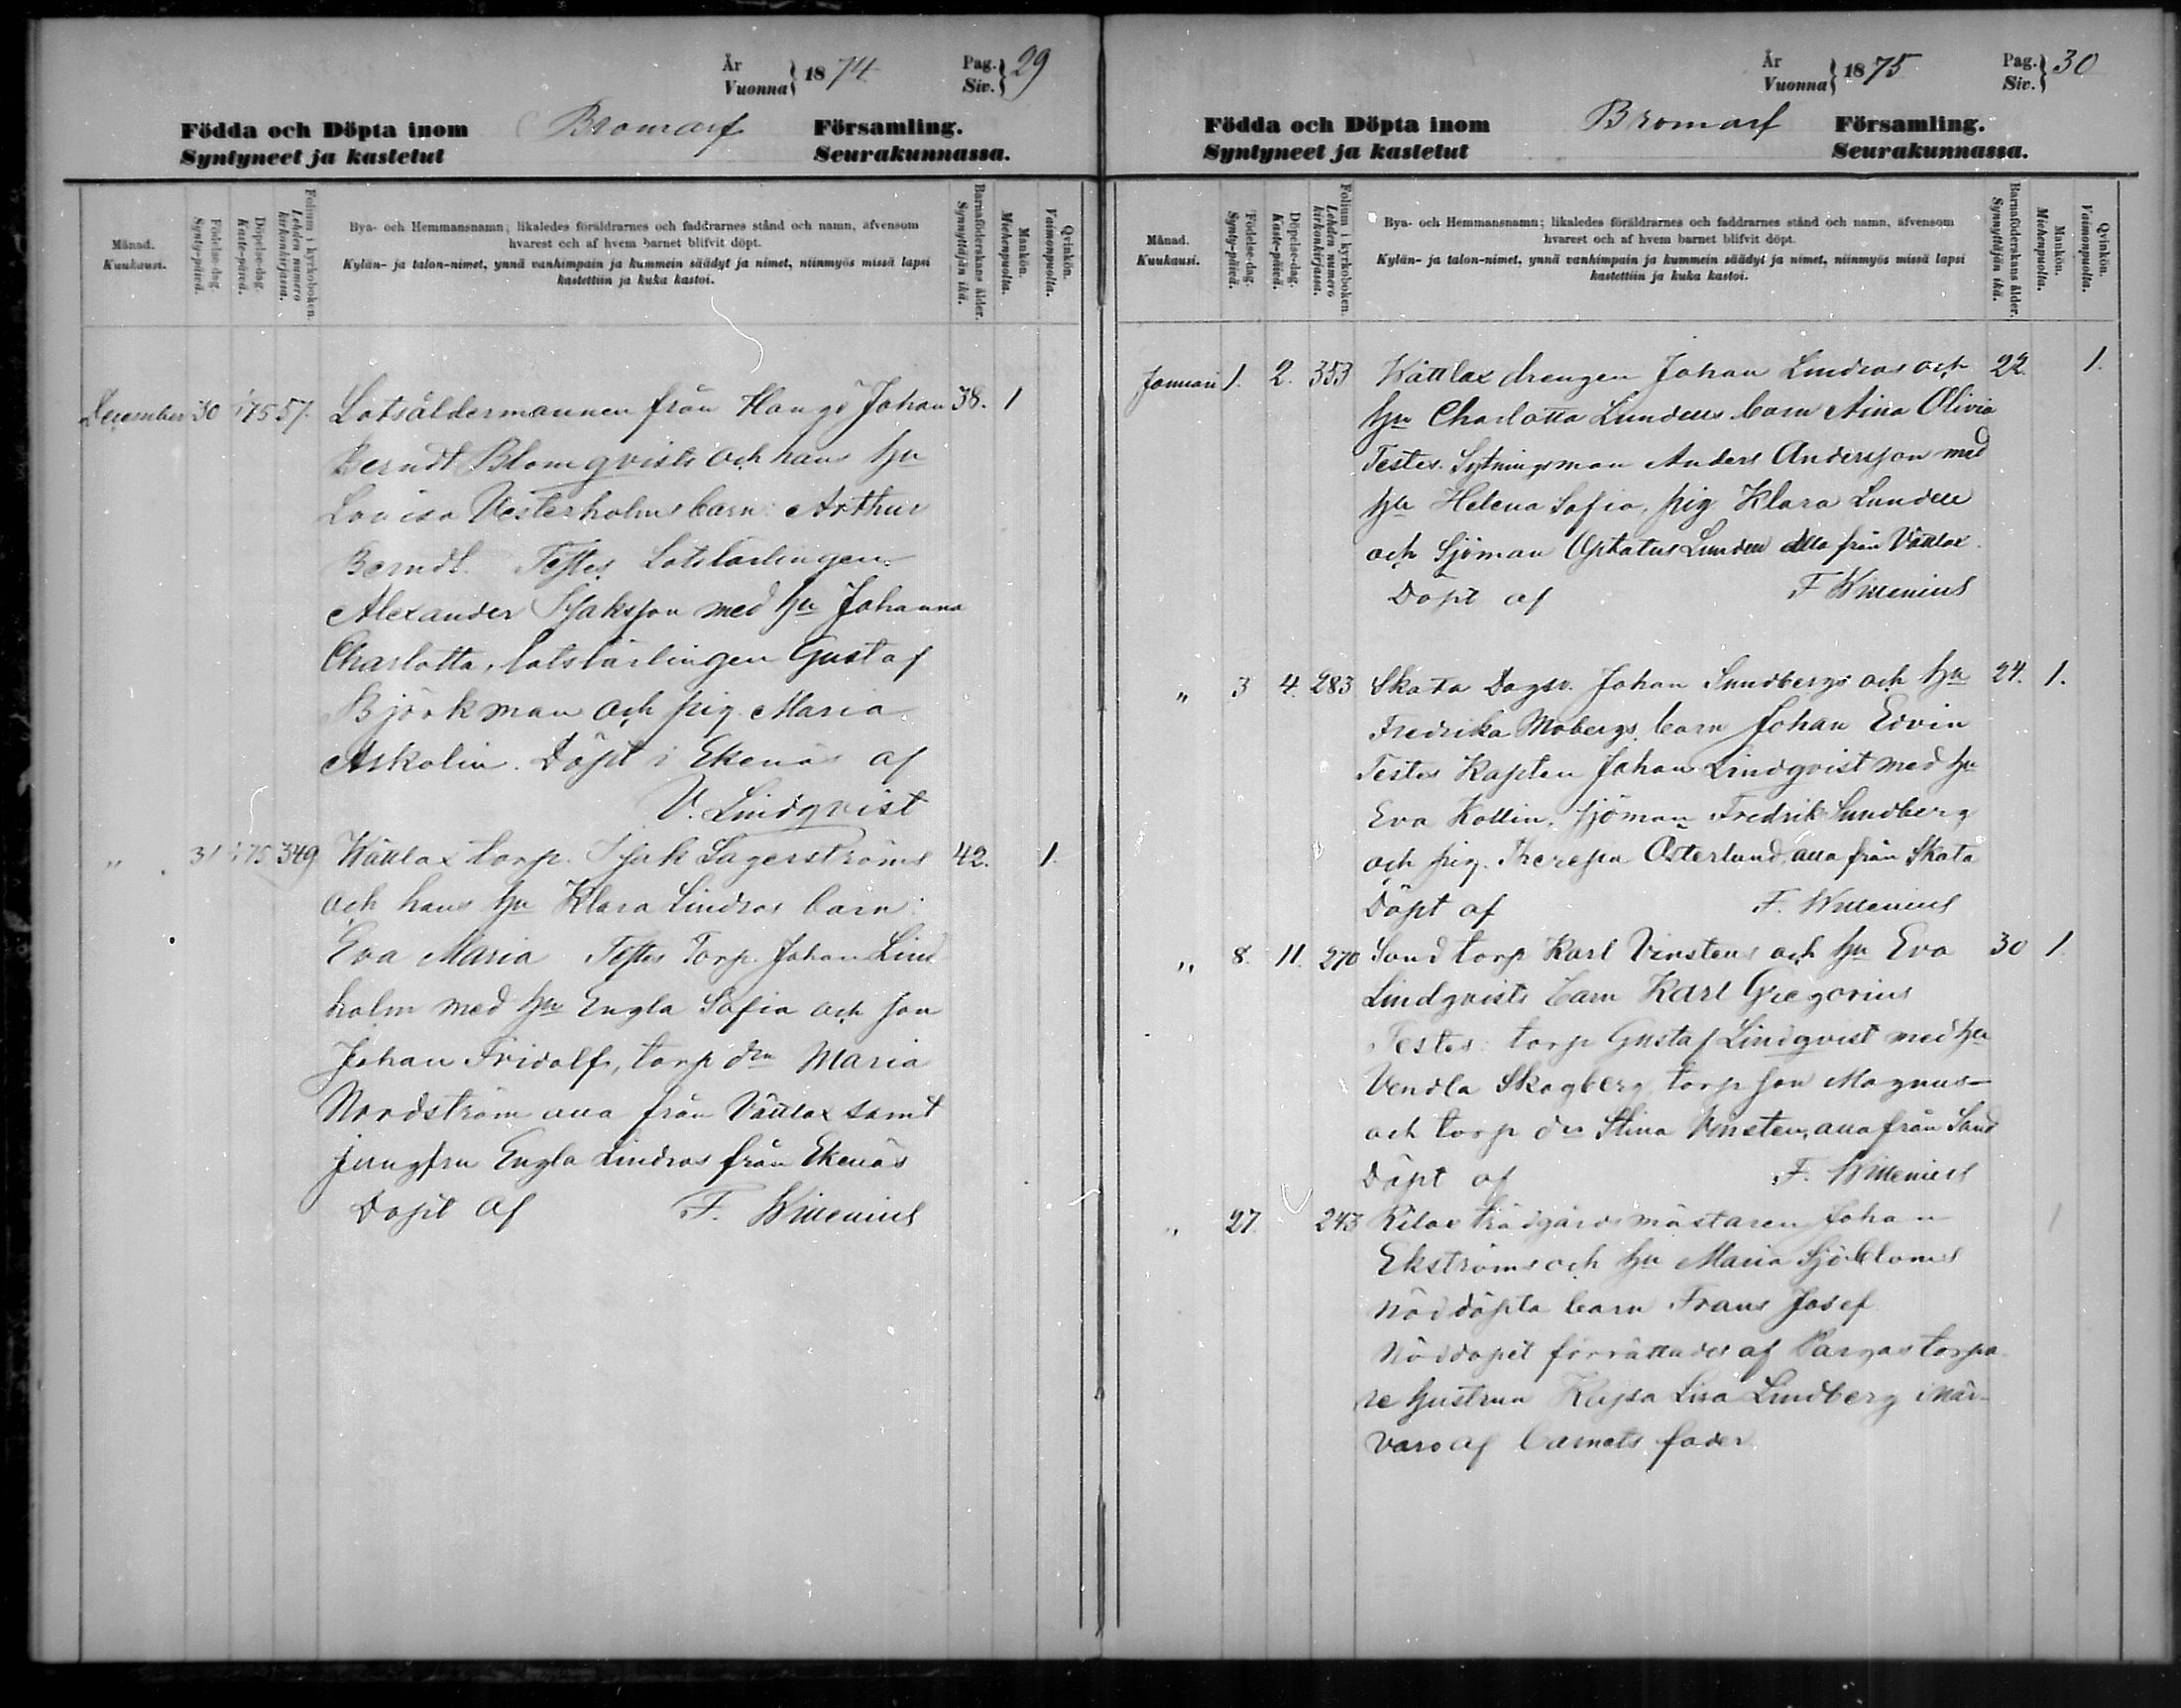 År
Vuonna } 1874.
Pag.
Siv. } 29
Födda och Döpta inom Bromarf Församling.
Syntyneet ja kastetut Seurakunnassa.
Månad.
Kuukausi.
Födelse-dag.
Synty-päivä.
Döpelse-dag.
Kaste-päivä.
Folium i kyrkoboken.
Lehden numero kirkonkirjassa.
Bya- och Hemmansnamn; likaledes föräldrarnes och faddrarnes stånd och namn, äfvensom
hvarest och af hvem barnet blifvit döpt.
Kylän- ja talon-nimet, ynnä vanhimpain ja kummein säädyt ja nimet, niinmyös missä lapsi
kastettiin ja kuka kastoi.
Barnaföderskans ålder.
Synnyttäjän ikä.
Mankön.
Miehenpuolta.
Qvinkön.
Vaimonpuolta.
December 30 75 57. Lotsåldermannen från Hangö Johan 38. 1
Berndt Blomqvists och hans hu
Lovisa Vesterholms barn: Arthur
Berndt. Testes Lotslärlingen
Alexander Isaksson med hu Johanna
Charlotta, lotslärlingen Gustaf
Björkman och pig. Maria
Askolin. Döpt i Ekenäs af
V. Lindqvist
" 31 75 349 Wättlax torp. Isak Lagerströms 42. 1.
och hans hu Klara Lindros barn:
Eva Maria Testes Torp. Johan Lind
holm med hu Engla Sofia och son
Johan Fridolf, torp dr Maria
Nordström alla från Vättlax samt
jungfru Engla Lindros från Ekenäs
Döpt af F. Willenius
År
Vuonna } 1875
Pag.
Siv. } 30
Födda och Döpta inom Bromarf Församling.
Syntyneet ja kastetut Seurakunnassa.
Månad.
Kuukausi.
Födelse-dag.
Synty-päivä.
Döpelse-dag.
Kaste-päivä.
Folium i kyrkoboken.
Lehden numero kirkonkirjassa.
Bya- och Hemmansnamn; likaledes föräldrarnes och faddrarnes stånd och namn, äfvensom
hvarest och af hvem barnet blifvit döpt.
Kylän- ja talon-nimet, ynnä vanhimpain ja kummein säädyt ja nimet, niinmyös missä lapsi
kastettiin ja kuka kastoi.
Barnaföderskans ålder.
Synnyttäjän ikä.
Mankön.
Miehenpuolta.
Qvinkön.
Vaimonpuolta.
Januari 1. 2. 353 Wättlax drengen Johan Lindros och 22 1.
hu Charlotta Lundells barn Aina Olivia
Testes. Sytningsman Anders Andersson med
hu Helena Sofia, pig Klara Lundell
och Sjöman Optatus Lundell alla från Vättlax.
Döpt af F Willenius
" 3 4. 283 Skata Dagsv. Johan Sundbergs och hu 24. 1.
Fredrika Mobergs barn Johan Edvin
Testes Kapten Johan Lindqvist med hu
Eva Kollin, sjöman Fredrik Sundberg
och pig. Theresia Österlund, alla från Skata
Döpt af F. Willenius
" 8. 11. 270 Sand torp Karl Vinstens och hu Eva 30 1.
Lindqvists barn Karl Gregorius
Testes: torp Gustaf Lindqvist med hu
Vendla Skogberg, torp son Magnus
och torp dr Stina Vinsten, alla från Sand
Döpt af F. Willenius
" 27. 243 Kilax trädgårdsmästaren Johan 1
Ekströms och hu Maria Sjöbloms
nöddöpta barn Frans Josef
Nöddopet förrättades af Pargas torpa
re hustrun Kajsa Lisa Lindberg i när-
varo af barnets fader.